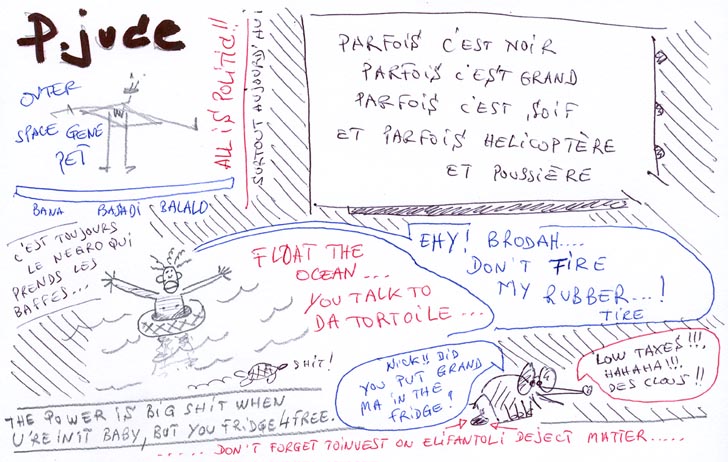 P.jude
OUTER
SPACE GENE
PET
BANA BASADI BALALO
ALL IS POLITIC!!
SURTOUT AUJOURD'HUI
PARFOIS C'EST NOIR
PARFOIS C'EST GRAND
PARFOIS C'EST SOIF
ET PARFOIS HELICOPTÈRE
ET POUSSIÈRE
C'EST TOUJOURS
LE NEGRO QUI
PRENDS LES
BAFFES...
FLOAT THE
OCEAN....
YOU TALK TO
DA TORTOILE...
EHY! BRODAH....
DON'T FIRE
MY RUBBER...!
TIRE
SHIT!
NICK!! DID
YOU PUT GRAND
MA IN THE
FRIDGE?
LOW TAXES!!!
HAHAHA!!!
DES CLOUS!!
THE POWER IS BIG SHIT WHEN
U'RE INIT BABY, BUT YOU FRIDGE 4 FREE.
..... DON'T FORGET TOINVEST ON ELIFANTOLI DEJECT MATTER.....